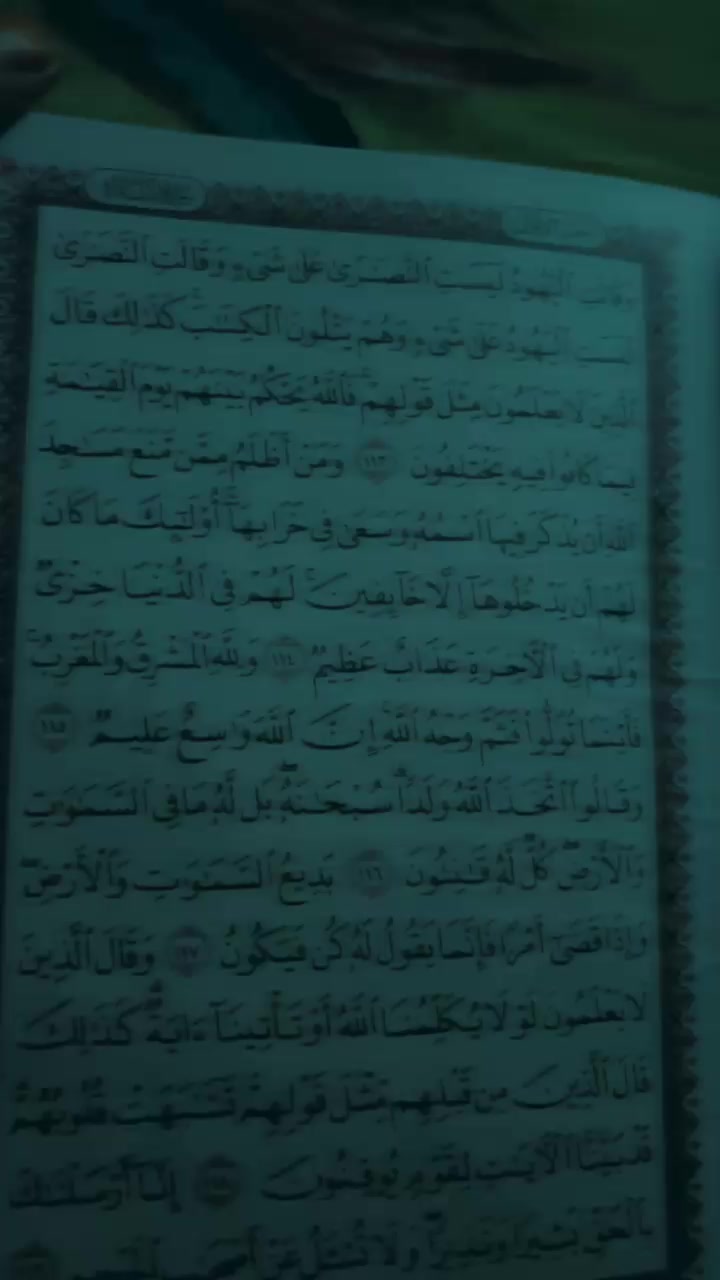 وَقَالَتِ ٱلْيَهُودُ لَيْسَتِ ٱلنَّصَـٰرَىٰ عَلَىٰ شَىْءٍ وَقَالَتِ ٱلنَّصَـٰرَىٰ
لَيْسَتِ ٱلْيَهُودُ عَلَىٰ شَىْءٍ وَهُمْ يَتْلُونَ ٱلْكِتَـٰبَ ۗ كَذَٰلِكَ قَالَ
ٱلَّذِينَ لَا يَعْلَمُونَ مِثْلَ قَوْلِهِمْ ۚ فَٱللَّهُ يَحْكُمُ بَيْنَهُمْ يَوْمَ ٱلْقِيَـٰمَةِ
فِيمَا كَانُوا۟ فِيهِ يَخْتَلِفُونَ ١١٣ وَمَنْ أَظْلَمُ مِمَّن مَّنَعَ مَسَـٰجِدَ
ٱللَّهِ أَن يُذْكَرَ فِيهَا ٱسْمُهُۥ وَسَعَىٰ فِى خَرَابِهَآ ۚ أُو۟لَـٰٓئِكَ مَا كَانَ
لَهُمْ أَن يَدْخُلُوهَآ إِلَّا خَآئِفِينَ ۚ لَهُمْ فِى ٱلدُّنْيَا خِزْىٌ
وَلَهُمْ فِى ٱلْـَٔاخِرَةِ عَذَابٌ عَظِيمٌ ١١٤ وَلِلَّهِ ٱلْمَشْرِقُ وَٱلْمَغْرِبُ ۚ
فَأَيْنَمَا تُوَلُّوا۟ فَثَمَّ وَجْهُ ٱللَّهِ ۚ إِنَّ ٱللَّهَ وَٰسِعٌ عَلِيمٌ ١١٥
وَقَالُوا۟ ٱتَّخَذَ ٱللَّهُ وَلَدًا ۗ سُبْحَـٰنَهُۥ ۖ بَل لَّهُۥ مَا فِى ٱلسَّمَـٰوَٰتِ
وَٱلْأَرْضِ ۖ كُلٌّ لَّهُۥ قَـٰنِتُونَ ١١٦ بَدِيعُ ٱلسَّمَـٰوَٰتِ وَٱلْأَرْضِ ۖ
وَإِذَا قَضَىٰٓ أَمْرًا فَإِنَّمَا يَقُولُ لَهُۥ كُن فَيَكُونُ ١١٧ وَقَالَ ٱلَّذِينَ
لَا يَعْلَمُونَ لَوْلَا يُكَلِّمُنَا ٱللَّهُ أَوْ تَأْتِينَآ ءَايَةٌ ۗ كَذَٰلِكَ
قَالَ ٱلَّذِينَ مِن قَبْلِهِم مِّثْلَ قَوْلِهِمْ ۘ تَشَـٰبَهَتْ قُلُوبُهُمْ ۗ
قَدْ بَيَّنَّا ٱلْـَٔايَـٰتِ لِقَوْمٍ يُوقِنُونَ ١١٨ إِنَّآ أَرْسَلْنَـٰكَ
بِٱلْحَقِّ بَشِيرًا وَنَذِيرًا ۖ وَلَا تُسْـَٔلُ عَنْ أَصْحَـٰبِ ٱلْجَحِيمِ